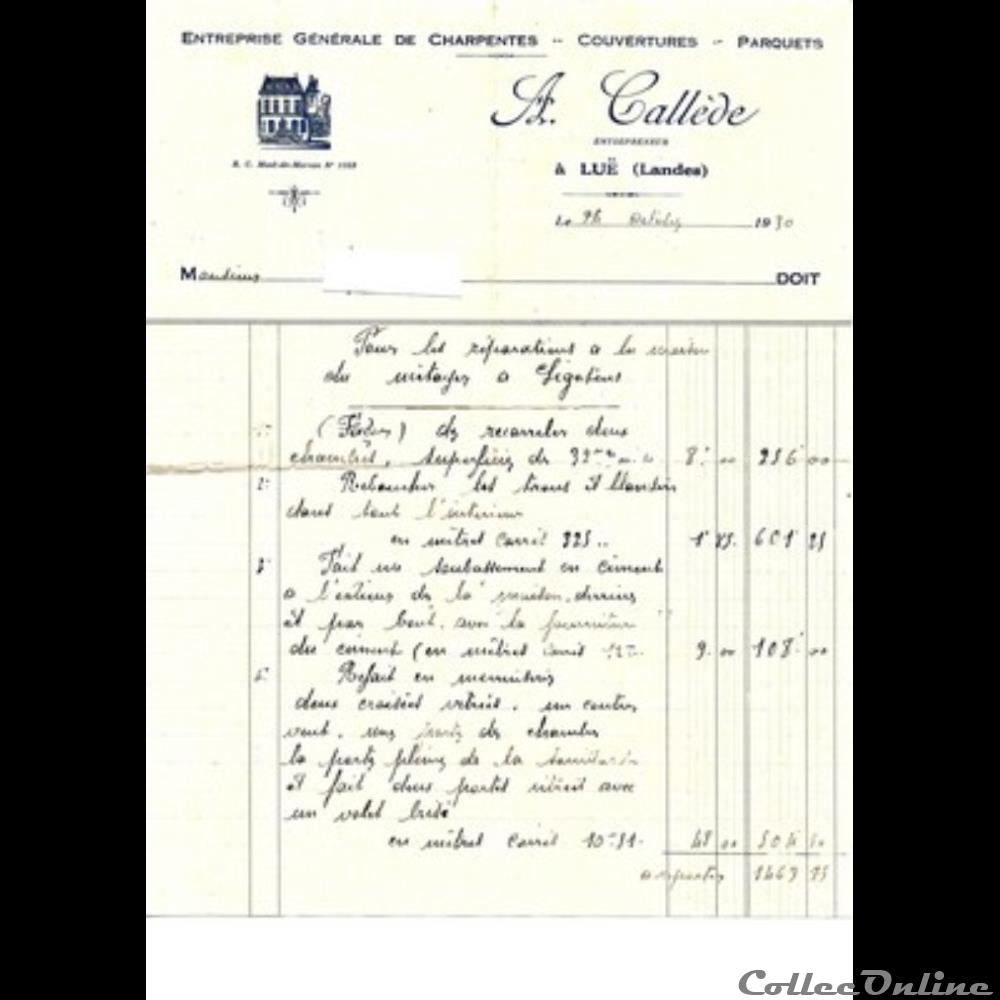 ENTREPRISE GÉNÉRALE DE CHARPENTES -- COUVERTURES -- PARQUETS
A. Callède
ENTREPRENEUR
R. C. Mont-de-Marsan N°
à LUË (Landes)
Le 26 1930
M DOIT
Pour les réparations a la maison
du a
1° de deux
chambres, de 32 8. 00 256 00
2° les trous et
dans tout l'interieur
en mètres carrés 325 1 85. 601 25
3° Fait un soubassement en ciment
a de la maison,
et par bout, avec la fourniture
du ciment (en mètres carrés 12 9. 00 108 00
4° Refait en menuiserie
deux croisées vitrées, un contre
vent, une porte de chambre
la porte pleine de la
et fait deux portes vitrées avec
un volet brisé
en mètres carrés 10 51 48 00 504
a reporter 1469
CollecOnline